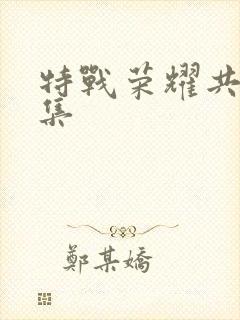 特戰荣耀共
集
鄭某嬌